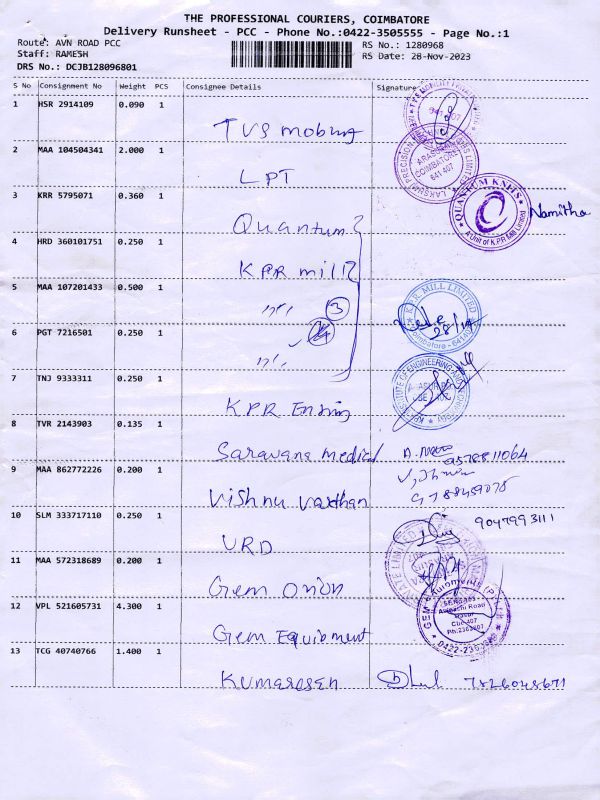 THE PROFESSIONAL COURIERS, COIMBATORE
Delivery Runsheet - PCC - Phone No.:0422-3505555 - Page No.:1
Route: AVN ROAD PCC
RS No.: 1280968
Staff: RAMESH
RS Date: 28-Nov-2023
DRS No.: DCJB128096801
S No Consignment No Weight PCS Consignee Details Signature
1 HSR 2914109 0.090 1
TVS mobung
2 MAA 104504341 2.000 1
LPT
3 KRR 5795071 0.360 1
Quantum
Namitha
4 HRD 360101751 0.250 1
KPR mill
5 MAA 107201433 0.500 1
3
28/11
6 PGT 7216501 0.250 1
7 TNJ 9333311 0.250 1
KPR Ening
8 TVR 2143903 0.135 1
Saravana medical
9578811064
9 MAA 862772226 0.200 1
Vishnu varthan
10 SLM 333717110 0.250 1
9047993111
URD
11 MAA 572318689 0.200 1
Gem Orion
12 VPL 521605731 4.300 1
Gem Equibment
13 TCG 40740766 1.400 1
Kumaresen
QUANTUM KNITS
A Unit of K P R Mill Limited
K.P.R. MILL LIMITED